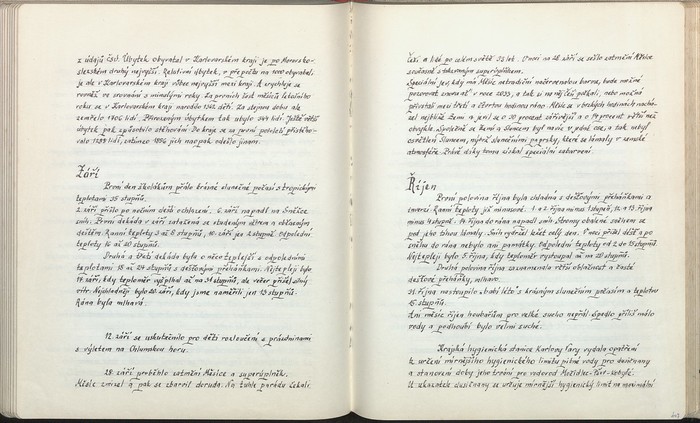 z údajů ČSÚ. Úbytek obyvatel v Karlovarském kraji je po Moravsko-
slezském druhý nejvyšší. Relativní úbytek, v přepočtu na 1000 obyvatel,
je ale v Karlovarském kraji vůbec nejvyšší mezi kraji. A zrychluje se
rovněž ve srovnání s minulými roky. Za prvních šest měsíců letošního
roku se v Karlovarském kraji narodilo 1362 dětí. Za stejnou dobu ale
zemřelo 1706 lidí. Přirozeným úbytkem tak ubylo 344 lidí. Ještě větší
úbytek pak způsobilo stěhování. Do kraje se za první pololetí přistěho-
valo 1234 lidí, zatímco 1896 jich naopak odešlo jinam.
Září
První den školákům přálo krásné slunečné počasí s tropickými
teplotami 33 stupňů.
2. září přišlo po nočním dešti ochlazení. 6. září napadl na Sněžce
sníh. První dekáda v září zatažená se studeným větrem a občasným
deštěm. Ranní teploty 3 až 8 stupňů, 10. září jen 2 stupně. Odpolední
teploty 16 až 20 stupňů.
Druhá a třetí dekáda byla o něco teplejší s odpoledními
teplotami 18 až 24 stupňů s dešťovými přeháňkami. Nejtepleji bylo
17. září, kdy teploměr vyšplhal až na 31 stupňů, ale večer přišel silný
vítr. Nejchladněji bylo 28. září, kdy jsme naměřili jen 13 stupňů.
Rána byla mlhavá.
12. září se uskutečnilo pro děti rozloučení s prázdninami
s výletem na Chlumskou horu.
28. září proběhlo zatmění Měsíce a superúplněk.
Měsíc zmizel a pak se zbarvil doruda. Na tuhle parádu čekali
Češi a lidé po celém světě 33 let. V noci na 28. září se sešlo zatmění Měsíce
současně s takzvaným superúplňkem.
Speciální jev, kdy má Měsíc netradiční načervenalou barvu, bude možné
pozorovat znovu až v roce 2033, a tak si nejeden počkal, nebo noční
přivstali mezi třetí a čtvrtou hodinou ráno. Měsíc se v brzkých hodinách nachá-
zel nejblíže Zemi a jevil se o 30 procent zářivější a o 14 procent větší než
obvykle. Společně se Zemí a Sluncem byl navíc v jedné ose, a tak nebyl
osvětlený Sluncem, nýbrž slunečními paprsky, které se lámaly v zemské
atmosféře. Právě díky tomu získal speciální zabarvení.
Říjen
První polovina října byla chladná s dešťovými přeháňkami a
inverzí. Ranní teploty již mínusové. 1. a 2. října mínus 1 stupeň, 12. a 13. října
mínus 4 stupně. 14. října do rána napadl sníh. Stromy obalené sněhem se
pod jeho tíhou lámaly. Sníh vydržel ležet celý den. V noci přišel déšť a po
sněhu do rána nebylo ani památky. Odpolední teploty od 2 do 15 stupňů.
Nejtepleji bylo 5. října, kdy teploměr vystoupal až na 20 stupňů.
Druhá polovina října zaznamenala větší oblačnost a časté
dešťové přeháňky, mlhavo.
31. říjen nastoupilo „babí léto" s krásným slunečním počasím a teplotou
15 stupňů.
Ani měsíc říjen houbařům pro velké sucho nepřál. Spadlo příliš málo
vody a podhoubí bylo velmi suché.
Krajská hygienická stanice Karlovy Vary vydala opatření
k určení mírnějšího hygienického limitu pitné vody pro dusičnany
a stanovení doby jeho trvání pro vodovod
U ukazatele dusičnany se určuje mírnější hygienický limit na maximální